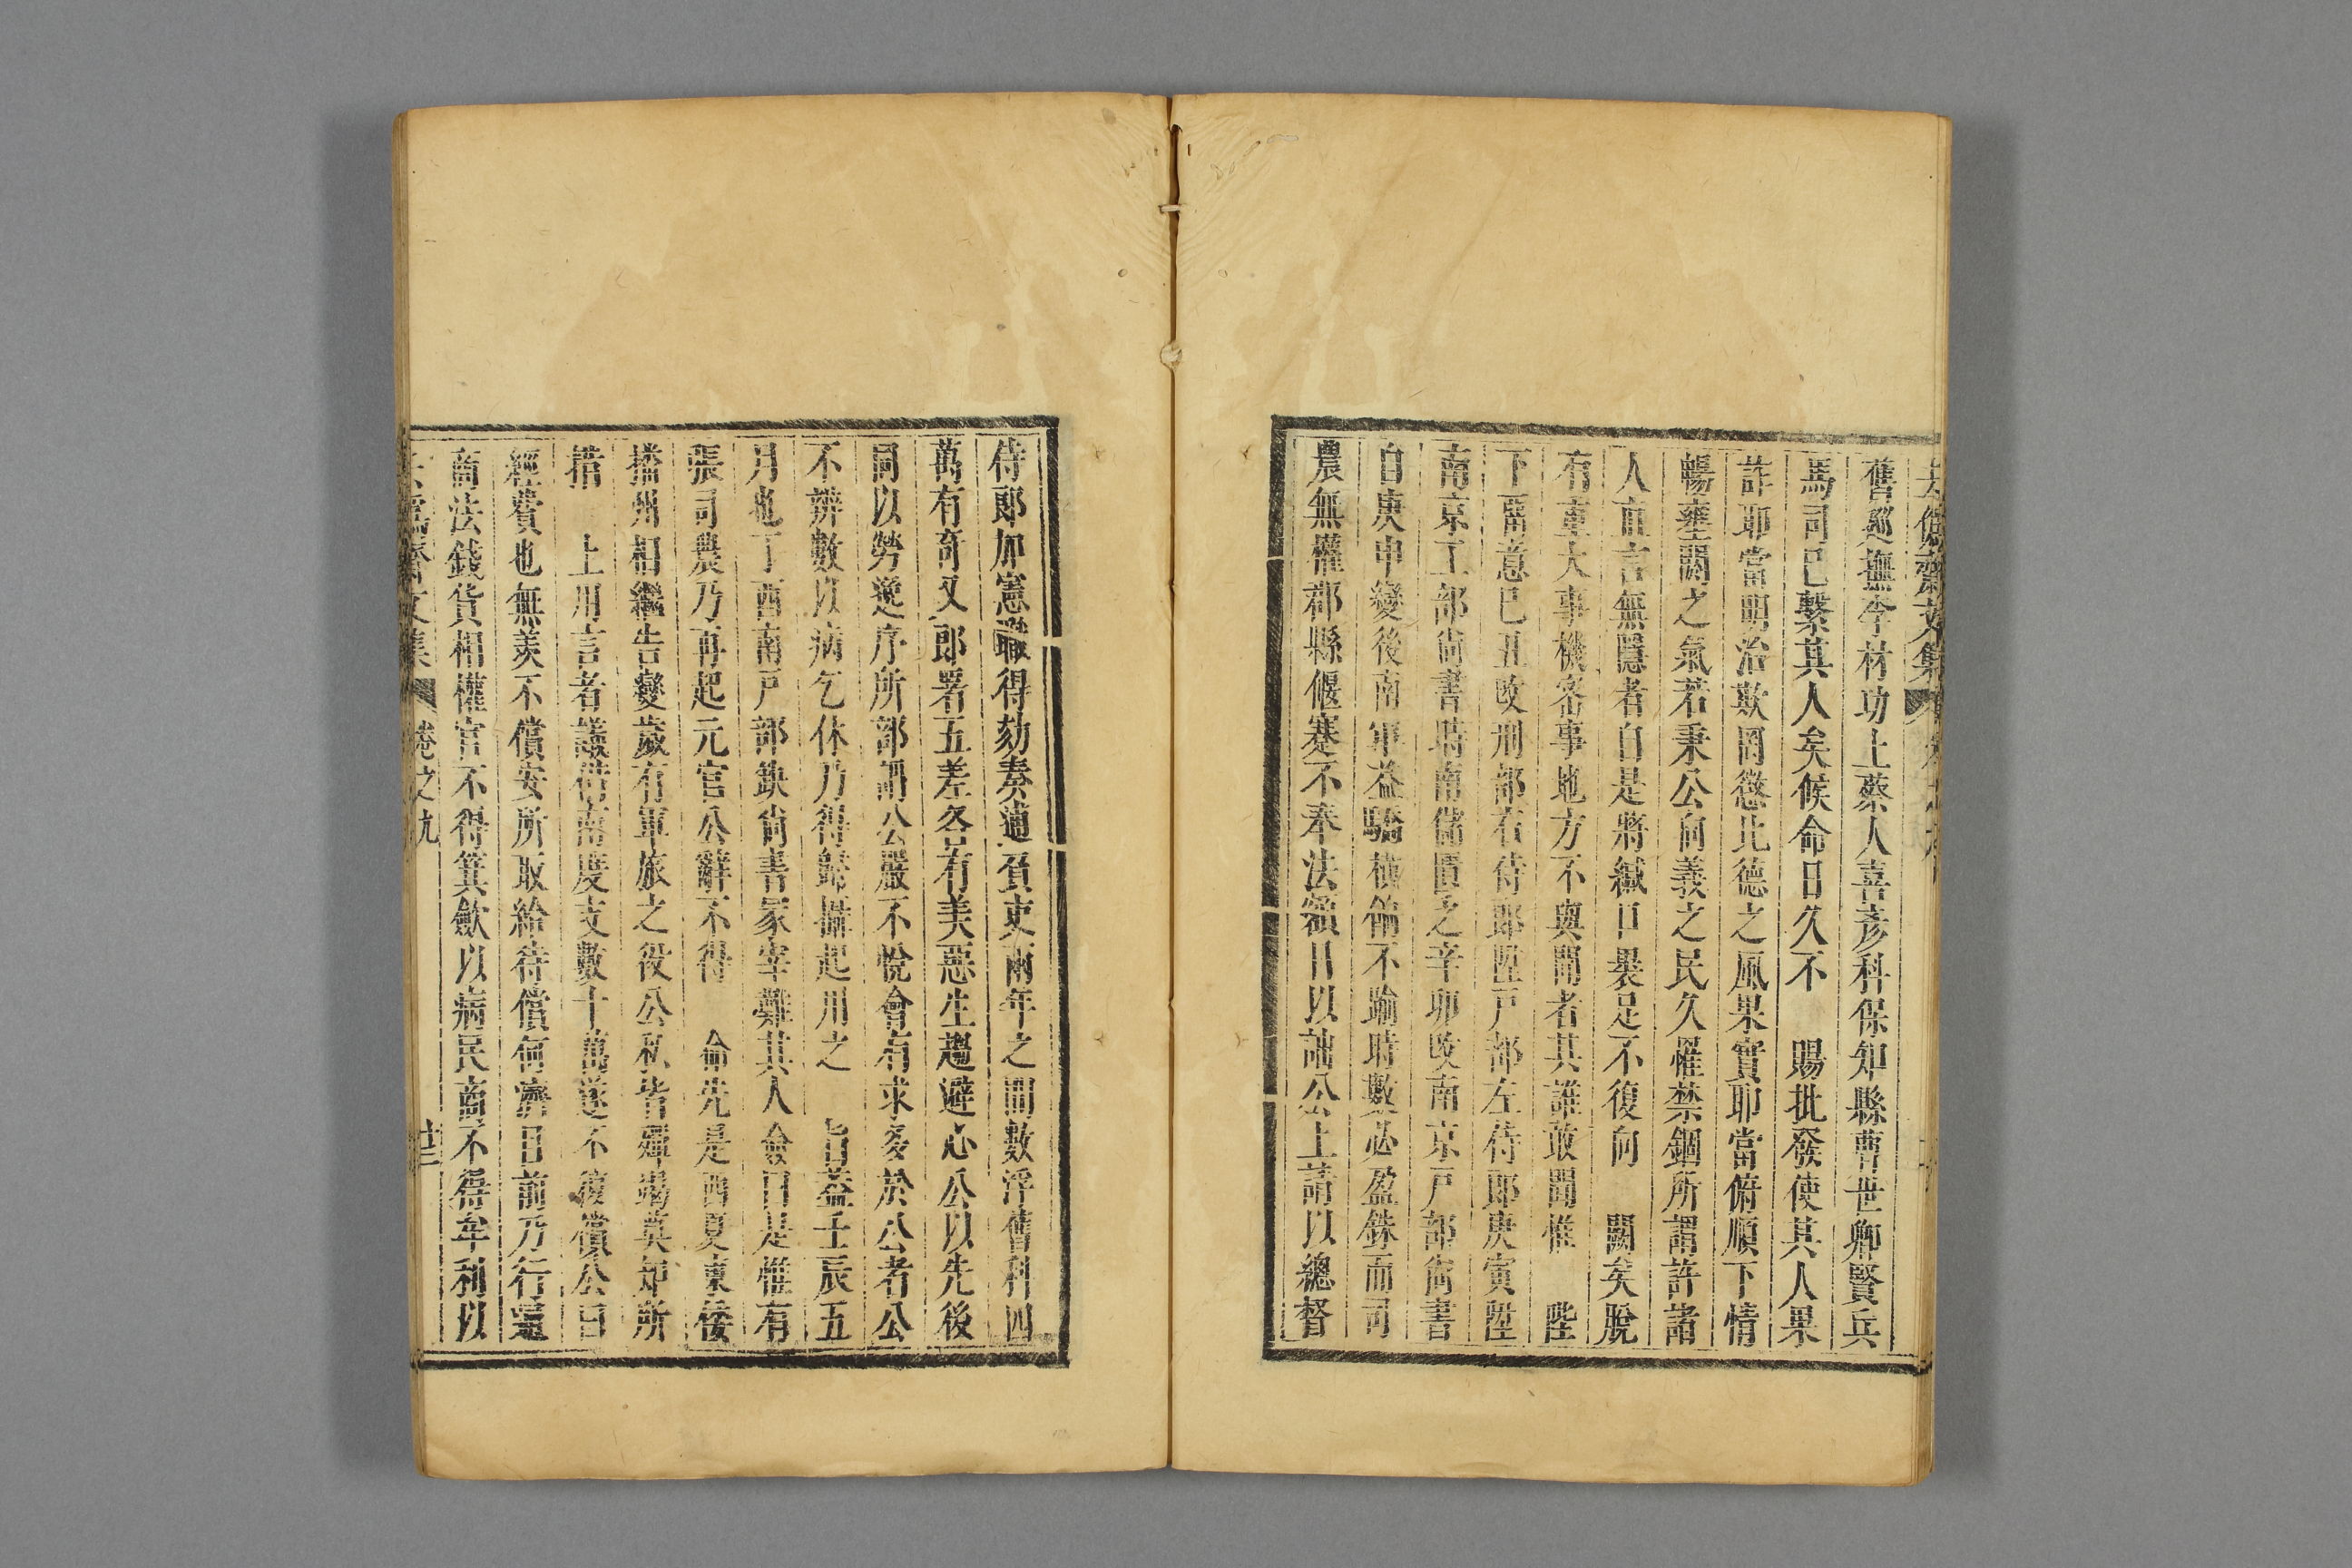 舊巡撫李材功上蔡人喜彥科保知縣曹世卿賢兵
馬司已繫其人矣候命日久不　賜批發使其人果
詐耶當明治欺罔懲比德之風果實耶當俯順下情
暢壅閼之氣若秉公向義之民久罹禁錮所謂許諸
人直言無隱者自是將緘口裹足不復向　闕矣脫
有重大事機密事地方不與聞者其誰敢聞惟　陛
下畱意己丑改刑部右侍郎陞戶部左侍郎庚寅陞
南京工部尚書時南儲匱之辛卯改南京戶部尚書
自庚申變後南軍益驕橫餉不踰時數必盈銖而司
農無權郡縣偃蹇不奉法額日以詘公上請以總督
侍郎加憲職得劾奏逋負吏兩年之間數浮舊科四
萬有奇又郎署五差各有美惡生趨避心公以先後
同以勞逸序所部謂公嚴不悅會有求多於公者公
不辨數以病乞休乃得歸攝起用之　旨蓋壬辰五
月也丁酉南戶部缺尚書冢宰難其人僉曰是惟有
張司農乃再起元官公辭不得　命先是西夏東倭
播州相繼告變歲有軍旅之役公私皆殫竭莫知所
措　上用言者議借南度支數十萬遂不復償公曰
經費也無羨不償安所取給待償何濟目前乃行還
商法錢貨相權官不得箕歛以病民商不得牟利以
卷之九